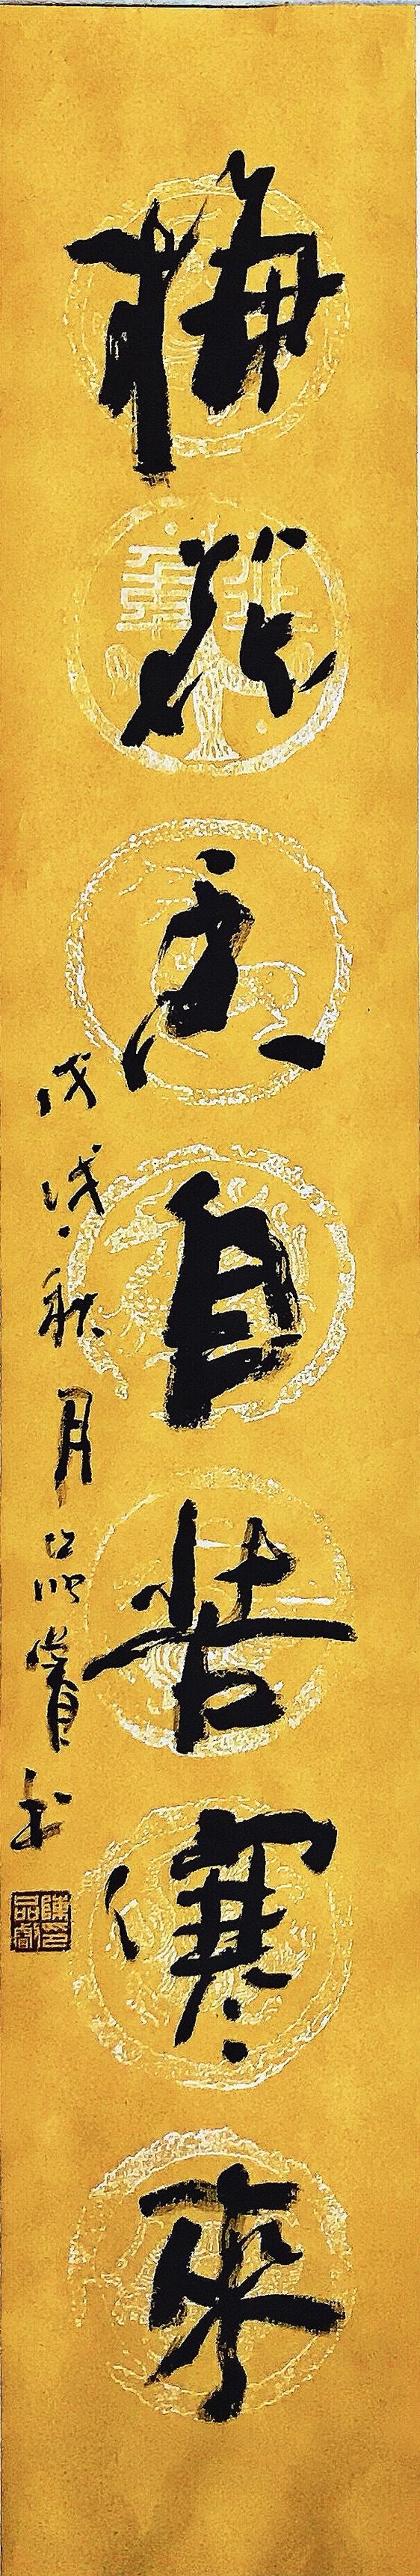 梅花香自苦寒來
戊戌秋月品睿书